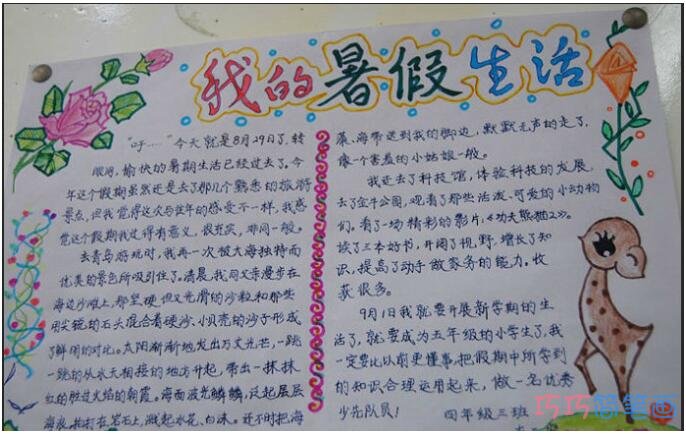 我的暑假生活
"吁……"今天就是8月29日了,转
眼间,愉快的暑期生活已经过去了,今
年这个假期虽然还是去了那几个熟悉的旅游
景点,但我觉得这次与往年的感受不一样,我感
觉这个假期我过得有意义,很充实,
去青岛游玩时,我再一次被大海独特而
优美的景色所吸引住了。清晨,我同父亲漫步在
海边沙滩上,那坚硬但又光滑的沙粒和那些
用尖锐的石头混合着硬沙、小贝壳的沙子形成
了鲜明的对比。太阳渐渐地发出万丈光芒,一跳一
跳的从水天相接的地方升起,带出一抹抹
红的胜过火焰的朝霞。海面波光鳞鳞,泛起层层
海浪,拍打在岩石上,溅起水花、白沫。还不时把海
展、海带送到我的脚边,默默无声的走了,
像一个害羞的小姑娘一般。
我还去了科技馆,体验科技的发展,
去了金牛公园,观看了那些活泼、可爱的小动物
们。看了一场精彩的影片,《功夫熊猫2》。
读了三本好书,开阔了视野,增长了知
识,提高了动手做家务的能力。收
获很多。
9月1日我就要开展新学期的生
活了,就要成为五年级的小学生了,我
一定要比以前更懂事,把假期中所学到
的知识合理运用起来,做一名优秀
少先队员!
四年级三班
巧巧简笔画